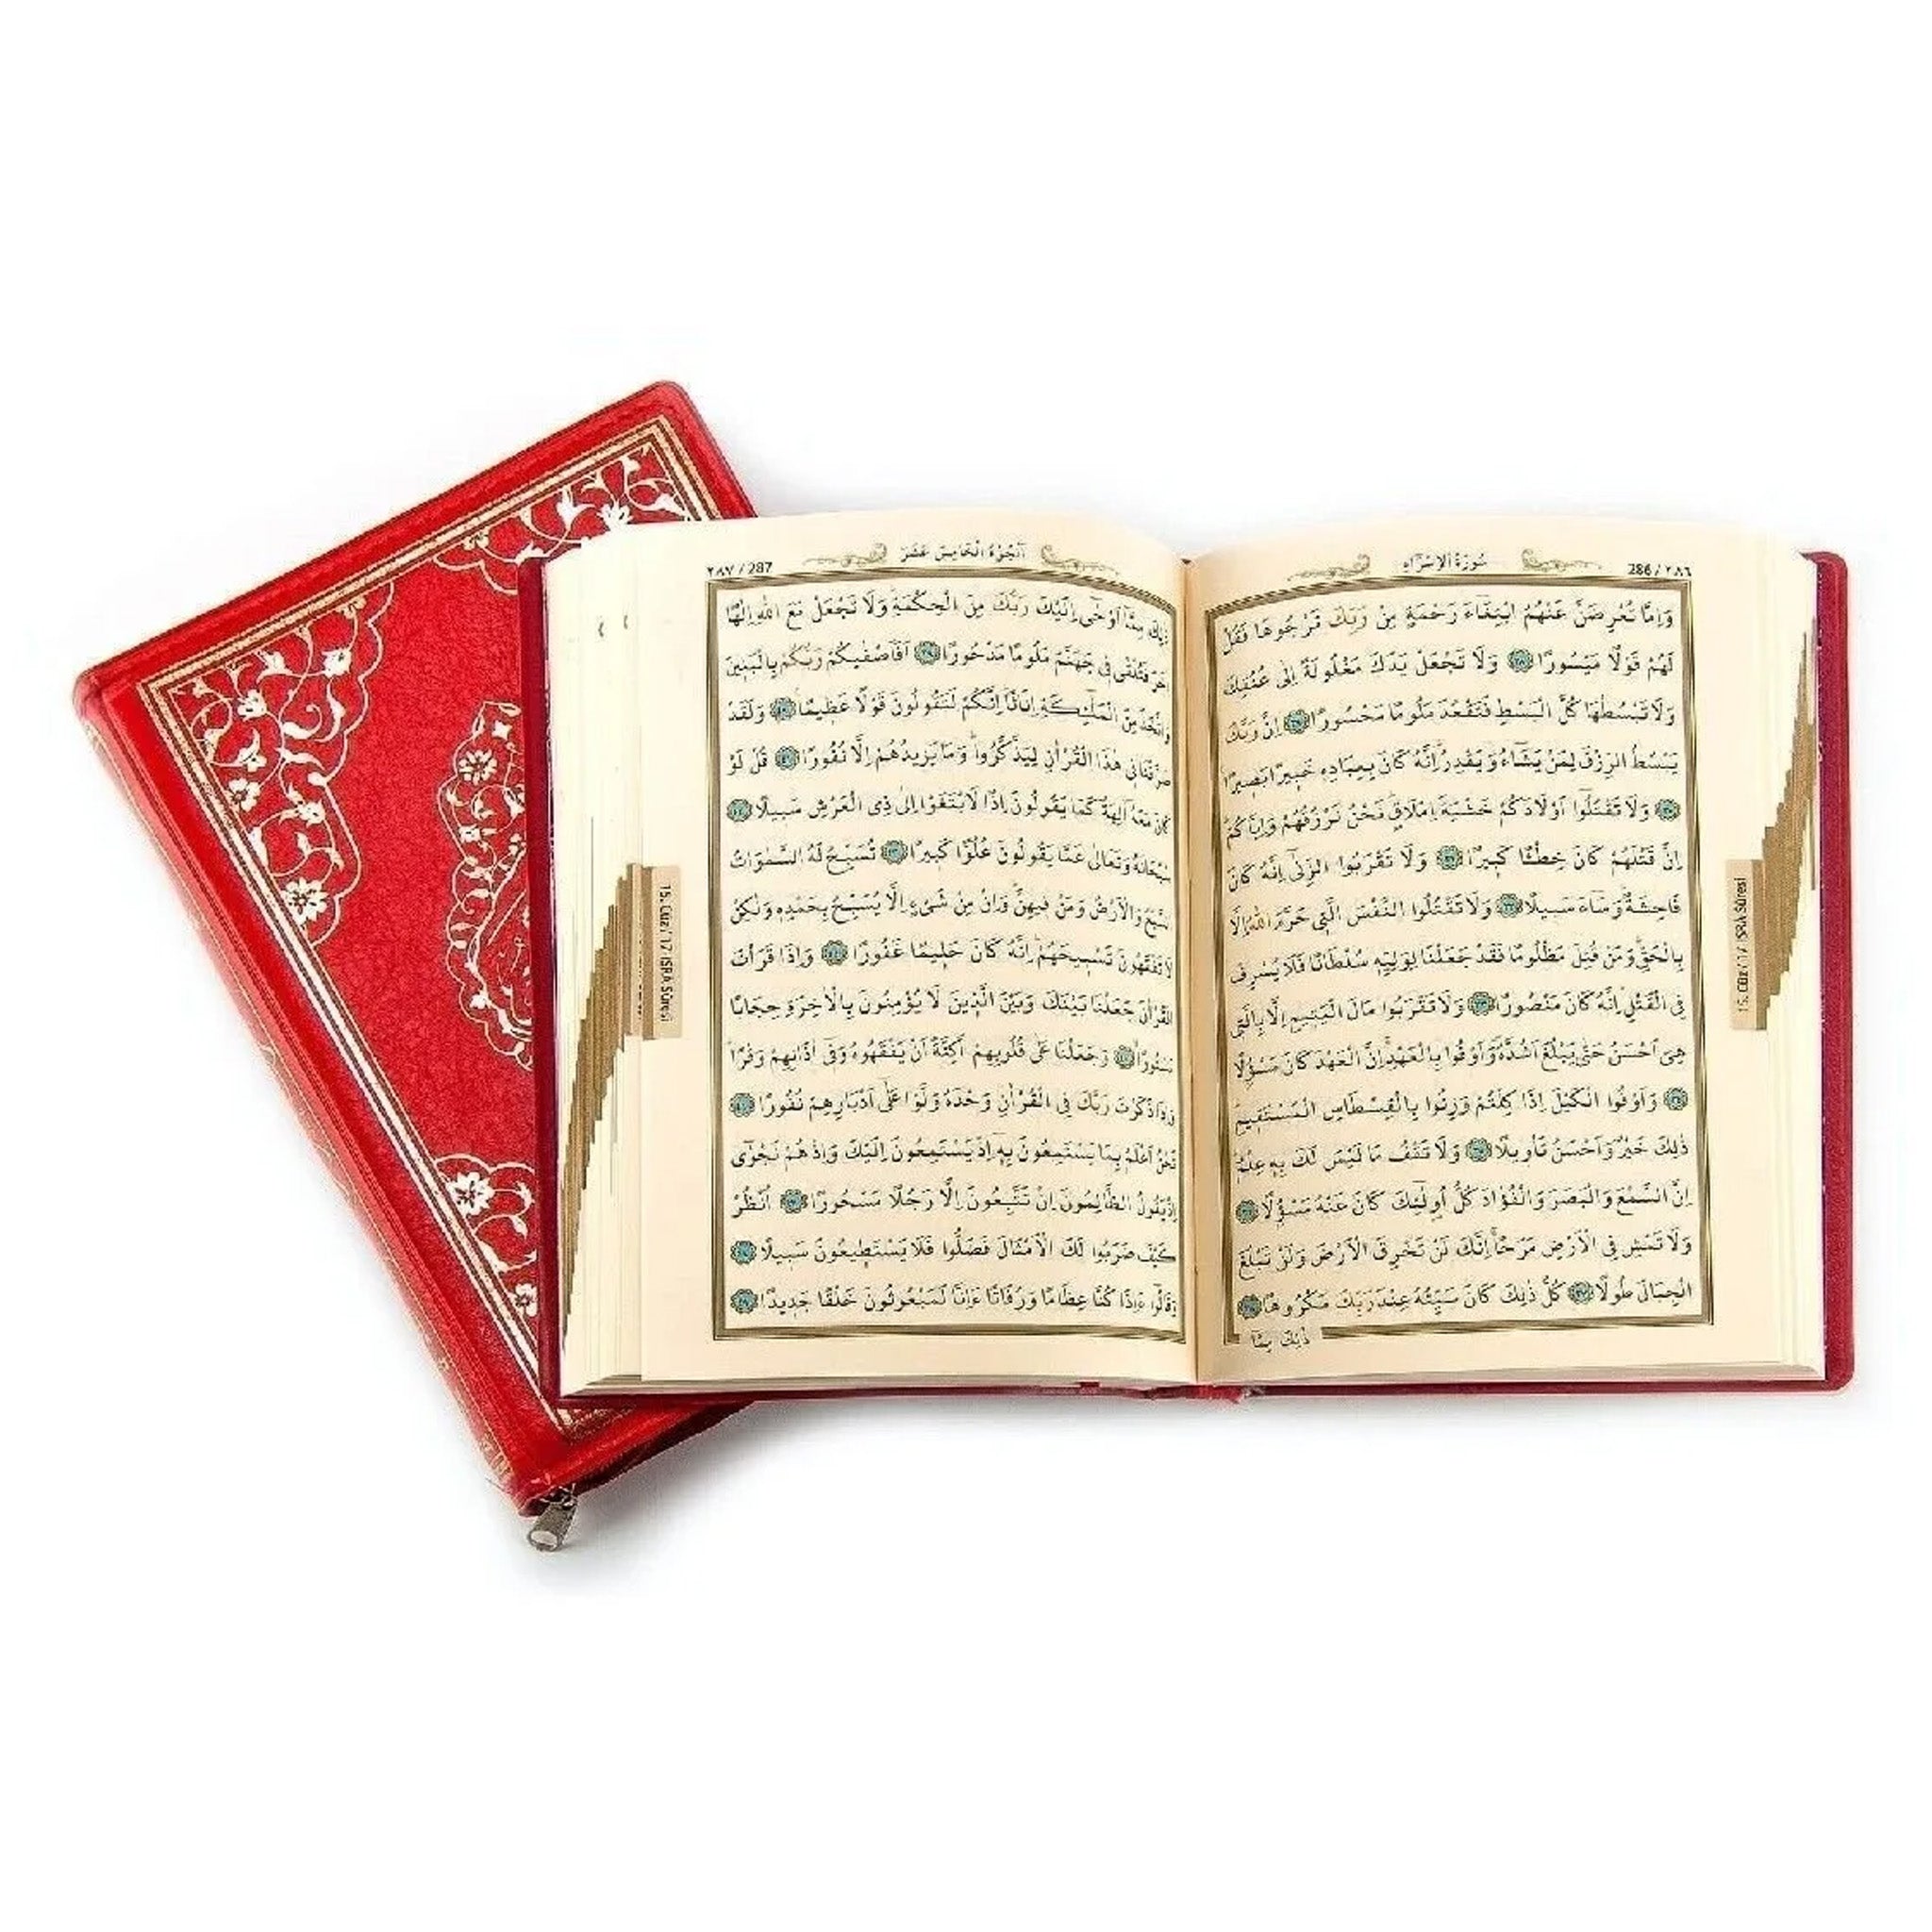 سُورَةُ الْاِسْرَٓاءِ
286 / ٢٨٦
وَاِمَّا تُعْرِضَنَّ عَنْهُمُ ابْتِغَٓاءَ رَحْمَةٍ مِنْ رَبِّكَ تَرْجُوهَا فَقُلْ
لَهُمْ قَوْلًا مَيْسُورًا ٢٨ وَلَا تَجْعَلْ يَدَكَ مَغْلُولَةً اِلٰى عُنُقِكَ
وَلَا تَبْسُطْهَا كُلَّ الْبَسْطِ فَتَقْعُدَ مَلُومًا مَحْسُورًا ٢٩ اِنَّ رَبَّكَ
يَبْسُطُ الرِّزْقَ لِمَنْ يَشَٓاءُ وَيَقْدِرُۜ اِنَّهُ كَانَ بِعِبَادِهٖ خَبٖيرًا بَصٖيرًا
٣٠ وَلَا تَقْتُلُٓوا اَوْلَادَكُمْ خَشْيَةَ اِمْلَاقٍۜ نَحْنُ نَرْزُقُهُمْ وَاِيَّاكُمْۜ
اِنَّ قَتْلَهُمْ كَانَ خِطْـًٔا كَبٖيرًا ٣١ وَلَا تَقْرَبُوا الزِّنٰٓى اِنَّهُ كَانَ
فَاحِشَةًۜ وَسَٓاءَ سَبٖيلًا ٣٢ وَلَا تَقْتُلُوا النَّفْسَ الَّتٖي حَرَّمَ اللّٰهُ اِلَّا
بِالْحَقِّۜ وَمَنْ قُتِلَ مَظْلُومًا فَقَدْ جَعَلْنَا لِوَلِيِّهٖ سُلْطَانًا فَلَا يُسْرِفْ
فِي الْقَتْلِۜ اِنَّهُ كَانَ مَنْصُورًا ٣٣ وَلَا تَقْرَبُوا مَالَ الْيَتٖيمِ اِلَّا بِالَّتٖي
هِيَ اَحْسَنُ حَتّٰى يَبْلُغَ اَشُدَّهُۖ وَاَوْفُوا بِالْعَهْدِۚ اِنَّ الْعَهْدَ كَانَ مَسْؤُ۫لًا
٣٤ وَاَوْفُوا الْكَيْلَ اِذَا كِلْتُمْ وَزِنُوا بِالْقِسْطَاسِ الْمُسْتَقٖيمِۜ
ذٰلِكَ خَيْرٌ وَاَحْسَنُ تَأْوٖيلًا ٣٥ وَلَا تَقْفُ مَا لَيْسَ لَكَ بِهٖ عِلْمٌۜ
اِنَّ السَّمْعَ وَالْبَصَرَ وَالْفُؤٰادَ كُلُّ اُو۬لٰٓئِكَ كَانَ عَنْهُ مَسْؤُ۫لًا ٣٦
وَلَا تَمْشِ فِي الْاَرْضِ مَرَحًاۚ اِنَّكَ لَنْ تَخْرِقَ الْاَرْضَ وَلَنْ تَبْلُغَ
الْجِبَالَ طُولًا ٣٧ كُلُّ ذٰلِكَ كَانَ سَيِّئُهُ عِنْدَ رَبِّكَ مَكْرُوهًا ٣٨
ذٰلِكَ مِمَّٓا
15. Cüz / 17 İSRÂ Sûresi
اَلْجُزْءُ الْخَامِسَ عَشَرَ
٢٨٧ / 287
ذٰلِكَ مِمَّٓا اَوْحٰٓى اِلَيْكَ رَبُّكَ مِنَ الْحِكْمَةِۜ وَلَا تَجْعَلْ مَعَ اللّٰهِ اِلٰهًا
اٰخَرَ فَتُلْقٰى فٖي جَهَنَّمَ مَلُومًا مَدْحُورًا ٣٩ اَفَاَصْفٰيكُمْ رَبُّكُمْ بِالْبَنٖينَ
وَاتَّخَذَ مِنَ الْمَلٰٓئِكَةِ اِنَاثًاۜ اِنَّكُمْ لَتَقُولُونَ قَوْلًا عَظٖيمًا ٤٠ وَلَقَدْ
صَرَّفْنَا فٖي هٰذَا الْقُرْاٰنِ لِيَذَّكَّرُواۜ وَمَا يَزٖيدُهُمْ اِلَّا نُفُورًا ٤١ قُلْ لَوْ
كَانَ مَعَهُٓ اٰلِهَةٌ كَمَا يَقُولُونَ اِذًا لَابْتَغَوْا اِلٰى ذِي الْعَرْشِ سَبٖيلًا ٤٢
سُبْحَانَهُ وَتَعَالٰى عَمَّا يَقُولُونَ عُلُوًّا كَبٖيرًا ٤٣ تُسَبِّحُ لَهُ السَّمٰوَاتُ
السَّبْعُ وَالْاَرْضُ وَمَنْ فٖيهِنَّۜ وَاِنْ مِنْ شَيْءٍ اِلَّا يُسَبِّحُ بِحَمْدِهٖ وَلٰكِنْ
لَا تَفْقَهُونَ تَسْبٖيحَهُمْۜ اِنَّهُ كَانَ حَلٖيمًا غَفُورًا ٤٤ وَاِذَا قَرَأْتَ
الْقُرْاٰنَ جَعَلْنَا بَيْنَكَ وَبَيْنَ الَّذٖينَ لَا يُؤْمِنُونَ بِالْاٰخِرَةِ حِجَابًا
مَسْتُورًاۙ ٤٥ وَجَعَلْنَا عَلٰى قُلُوبِهِمْ اَكِنَّةً اَنْ يَفْقَهُوهُ وَفٖٓي اٰذَانِهِمْ وَقْرًاۜ
وَاِذَا ذَكَرْتَ رَبَّكَ فِي الْقُرْاٰنِ وَحْدَهُ وَلَّوْا عَلٰٓى اَدْبَارِهِمْ نُفُورًا ٤٦
نَحْنُ اَعْلَمُ بِمَا يَسْتَمِعُونَ بِهٖٓ اِذْ يَسْتَمِعُونَ اِلَيْكَ وَاِذْ هُمْ نَجْوٰٓى
اِذْ يَقُولُ الظَّالِمُونَ اِنْ تَتَّبِعُونَ اِلَّا رَجُلًا مَسْحُورًا ٤٧ اُنْظُرْ
كَيْفَ ضَرَبُوا لَكَ الْاَمْثَالَ فَضَلُّوا فَلَا يَسْتَطٖيعُونَ سَبٖيلًا ٤٨
وَقَالُٓوا ءَاِذَا كُنَّا عِظَامًا وَرُفَاتًا ءَاِنَّا لَمَبْعُوثُونَ خَلْقًا جَدٖيدًا ٤٩
15. Cüz / 17 İSRÂ Sûresi